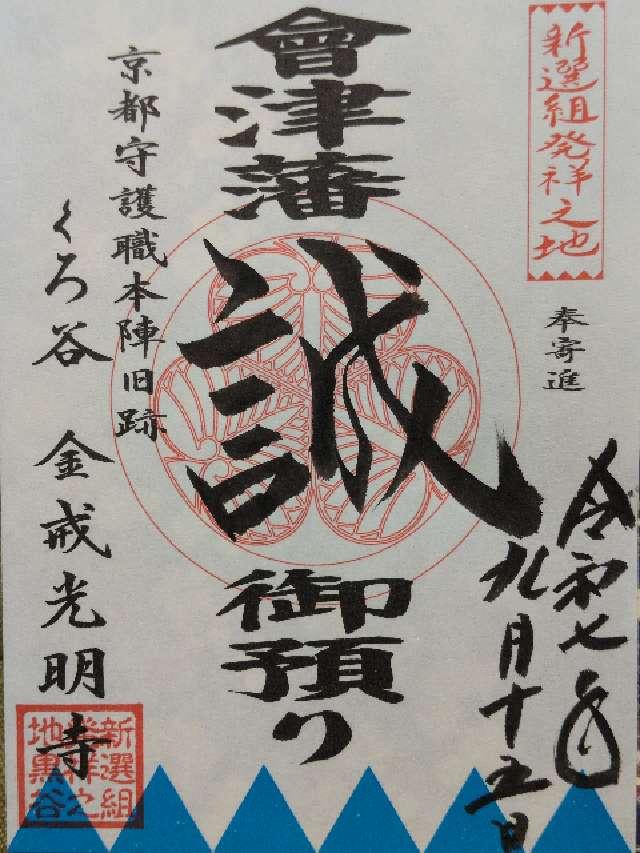 新選組発祥之地
奉寄進
令和七年
九月十五日
會津藩
誠
御預り
京都守護職本陣旧跡
くろ谷 金戒光明寺
新選組
発祥之
地黒谷